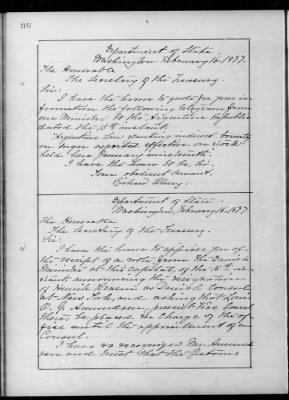 Department of State,
Washington, February 16, 1897.
The Honorable
The Secretary of the Treasury
Sir:
I have the honor to quote for your in-
formation the following telegram from
our Minister to the Argentine Republic
dated the instant.
Argentine Law granting indirect bounty
on sugar exported effective on stock
held here January nineteenth.
I have the honor to be, Sir,
Your obedient servant,
Richard Olney.
Department of State,
Washington, February 16, 1897
The Honorable
The Secretary of the Treasury.
Sir:
I have the honor to apprise you of
the receipt of a note from the Danish
Minister at this Capital, of the in-
stant announcing the resignation
of Henrik as Danish Consul
at New York, and asking that Louis
O. G. Amundsen, present Vice Consul
there, be placed in charge of the of-
fice until the appointment of a
Consul.
I have so recognized Mr. Amund-
sen and trust that the Customs